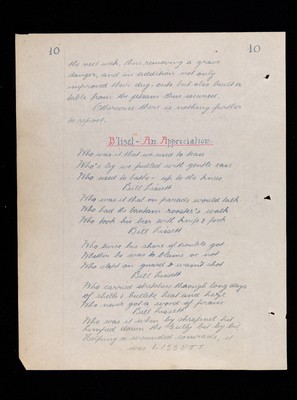 10 10
the next week, thus removing a grave
danger, and in addition not only
improved their dug-outs but also built a
table from the planks thus secured.
Otherwise there is nothing further
to report.
B'lisst - An Appreciation.
Who was it that we used to tease
Who's leg we pulled with gentle ease
Who used to battle - up to the knees
Bill Lissett
Who was it that on parade would talk
Who had the bantam rooster's walk
Who took his beer with knife & fork
Bill Lissett
Who twice his share of trouble got
Whether he was to blame or not
Who slept on guard & wasn't shot
Bill Lissett
Who carried stretchers through long days
of shells & bullets heat and haze
Who never got a word of praise
Bill Lissett
Who was it when by shrapnel hit
Limped down the Gully bit by bit
Helping a wounded comrade, it
was L-I-S-S-E-T-T